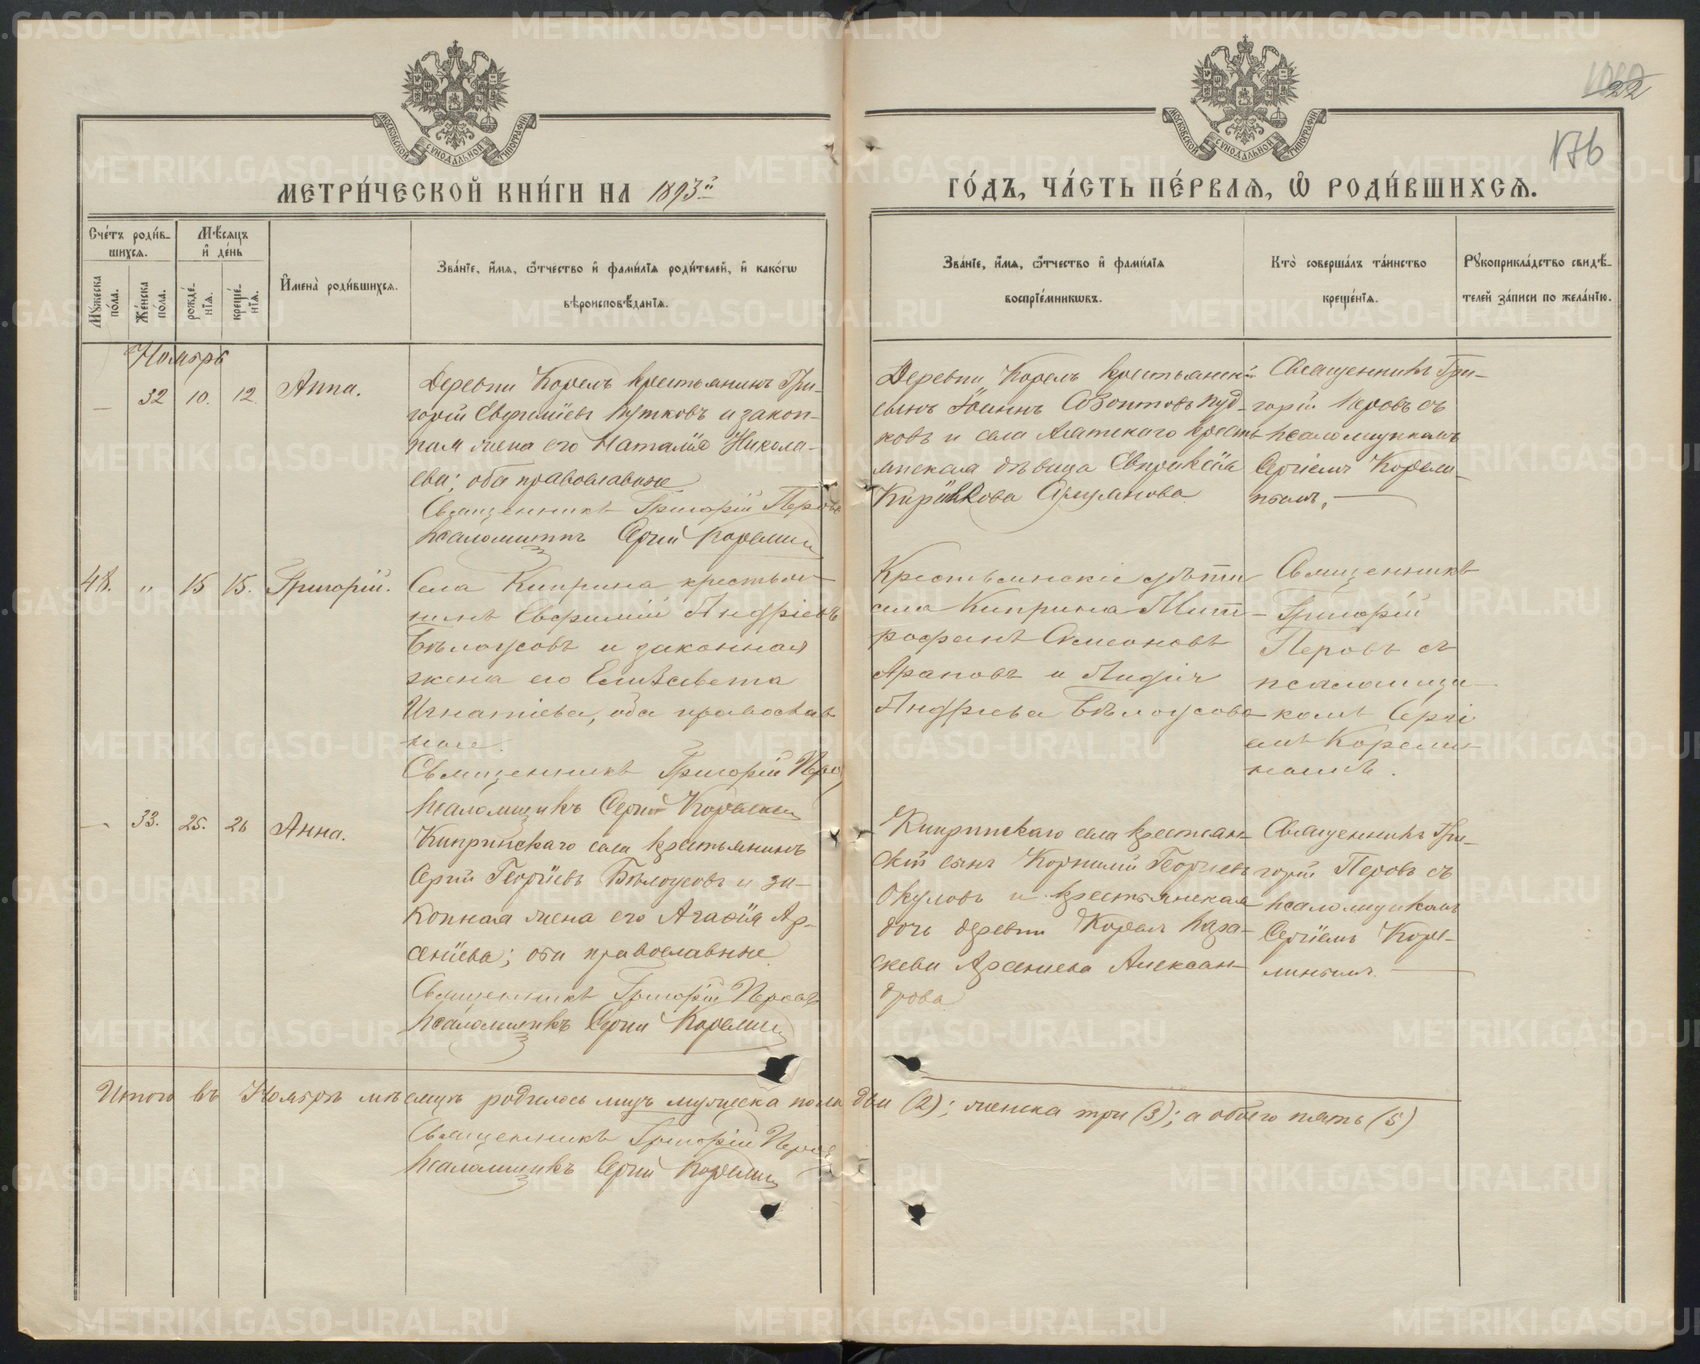 МЕТРИ́ЧЕСКОЙ КНИ́ГИ НА 1893й
ГО́ДЪ, ЧА́СТЬ ПЕ́РВАЯ, Ѽ РОДИ́ВШИХСЯ.
176
22
МОСКОВСКОЙ СѴНОДАЛЬНОЙ ТИПОГРАФІИ
МОСКОВСКОЙ СѴНОДАЛЬНОЙ ТИПОГРАФІИ
Сче́тъ роди́в-
шихся.
Мѣ́сяцъ
и҆ де́нь
Мꙋ́жеска
по́ла.
Же́нска
по́ла.
рожде́-
нїя.
креще́-
нїя.
И҆мена̀ роди́вшихся.
Зва́нїе, и҆́мя, ѻ҆́тчество и҆ фами́лїя роди́телей, и҆ како́гѡ
вѣроисповѣ́данїя.
Зва́нїе, и҆́мя, ѻ҆́тчество и҆ фами́лїя
воспрїе́мникѡвъ.
Кто̀ соверша́лъ та́инство
креще́нїя.
Рꙋкоприкла́дство свидѣ́-
телей за́писи по жела́нїю.
Ноябрь
— 32 10. 12. Анна.
Деревни Корелъ крестьянинъ Гри-
горій Евфиміевъ Путковъ и закон-
ная жена его Наталія Никола-
ева; оба православные
Священникъ Григорій Перовъ
Псаломщикъ Сергій Корелин
Деревни Корелъ крестьянскій
сынъ Іоаннъ Созонтовъ
ковъ и села крестья-
янская дѣвица Евпраксія
Кириллова
Священникъ Гри-
горій Перовъ съ
псаломщикомъ
Сергіемъ Корели-
нымъ. —
48. " 15 15. Григорій.
Села Киприна крестья-
нинъ Евфимій Андріевъ
Бѣлоусовъ и законная
жена его Елисавета
Игнатіева, оба православ
ные.
Священникъ Григорій Перо
Псаломщикъ Сергій Корелин
Крестьянскіе дѣти
села Киприна Мит-
рофанъ Симеоновъ
Араповъ и Лидія
Андріева Бѣлоусова
Священникъ
Григорій
Перовъ съ
псаломщи-
комъ Сергі
емъ Корели-
нымъ.
— 33. 25. 26 Анна.
Кипринскаго села крестьянинъ
Сергій Георгіевъ Бѣлоусовъ и за-
конная жена его Агаѳія Ар-
сеніева; оба православные.
Священникъ Григорій Перовъ
Псаломщикъ Сергій Корелин
Кипринскаго села крестьян-
скій сынъ Корнилій Георгіевъ
Окуловъ и крестьянская
дочь деревни Корелъ Пара-
скева Арсеніева Алексан-
дрова
Священникъ Гри-
горій Перовъ съ
псаломщикомъ
Сергіемъ Коре-
линымъ. —
Итого въ Ноябрѣ мѣсяцѣ родилось лицъ мужеска пола два (2); женска три (3); а обоего пять (5)
Священникъ Григорій Перов
Псаломщикъ Сергій Корелин
METRIKI.GASO-URAL.RU